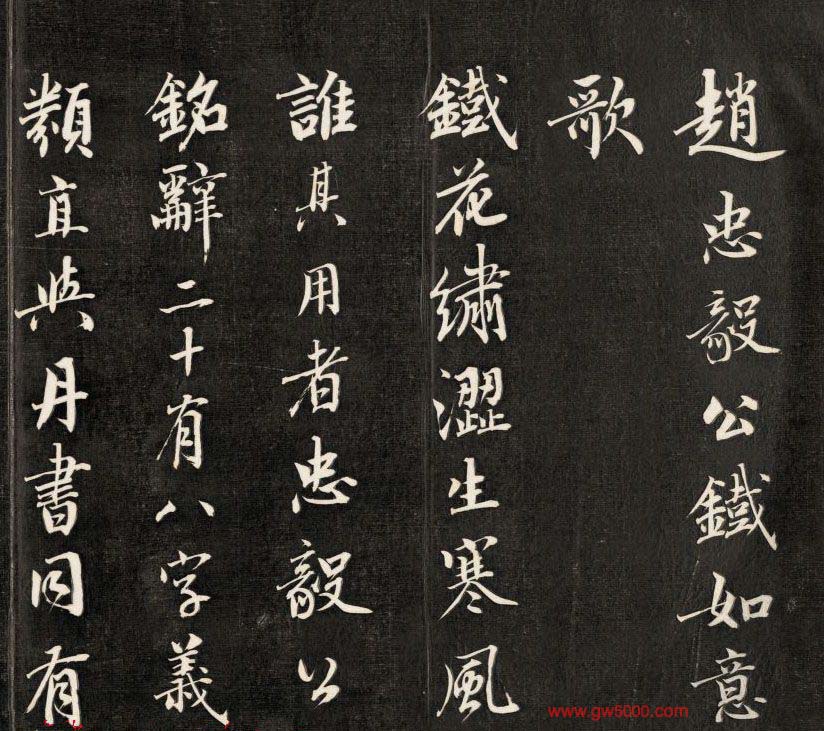 趙忠毅公鐵如意
歌
鐵花繡澀生寒風
誰其用者忠毅公
銘辭二十有八字義
類直與丹書同有
www.gw5000.com